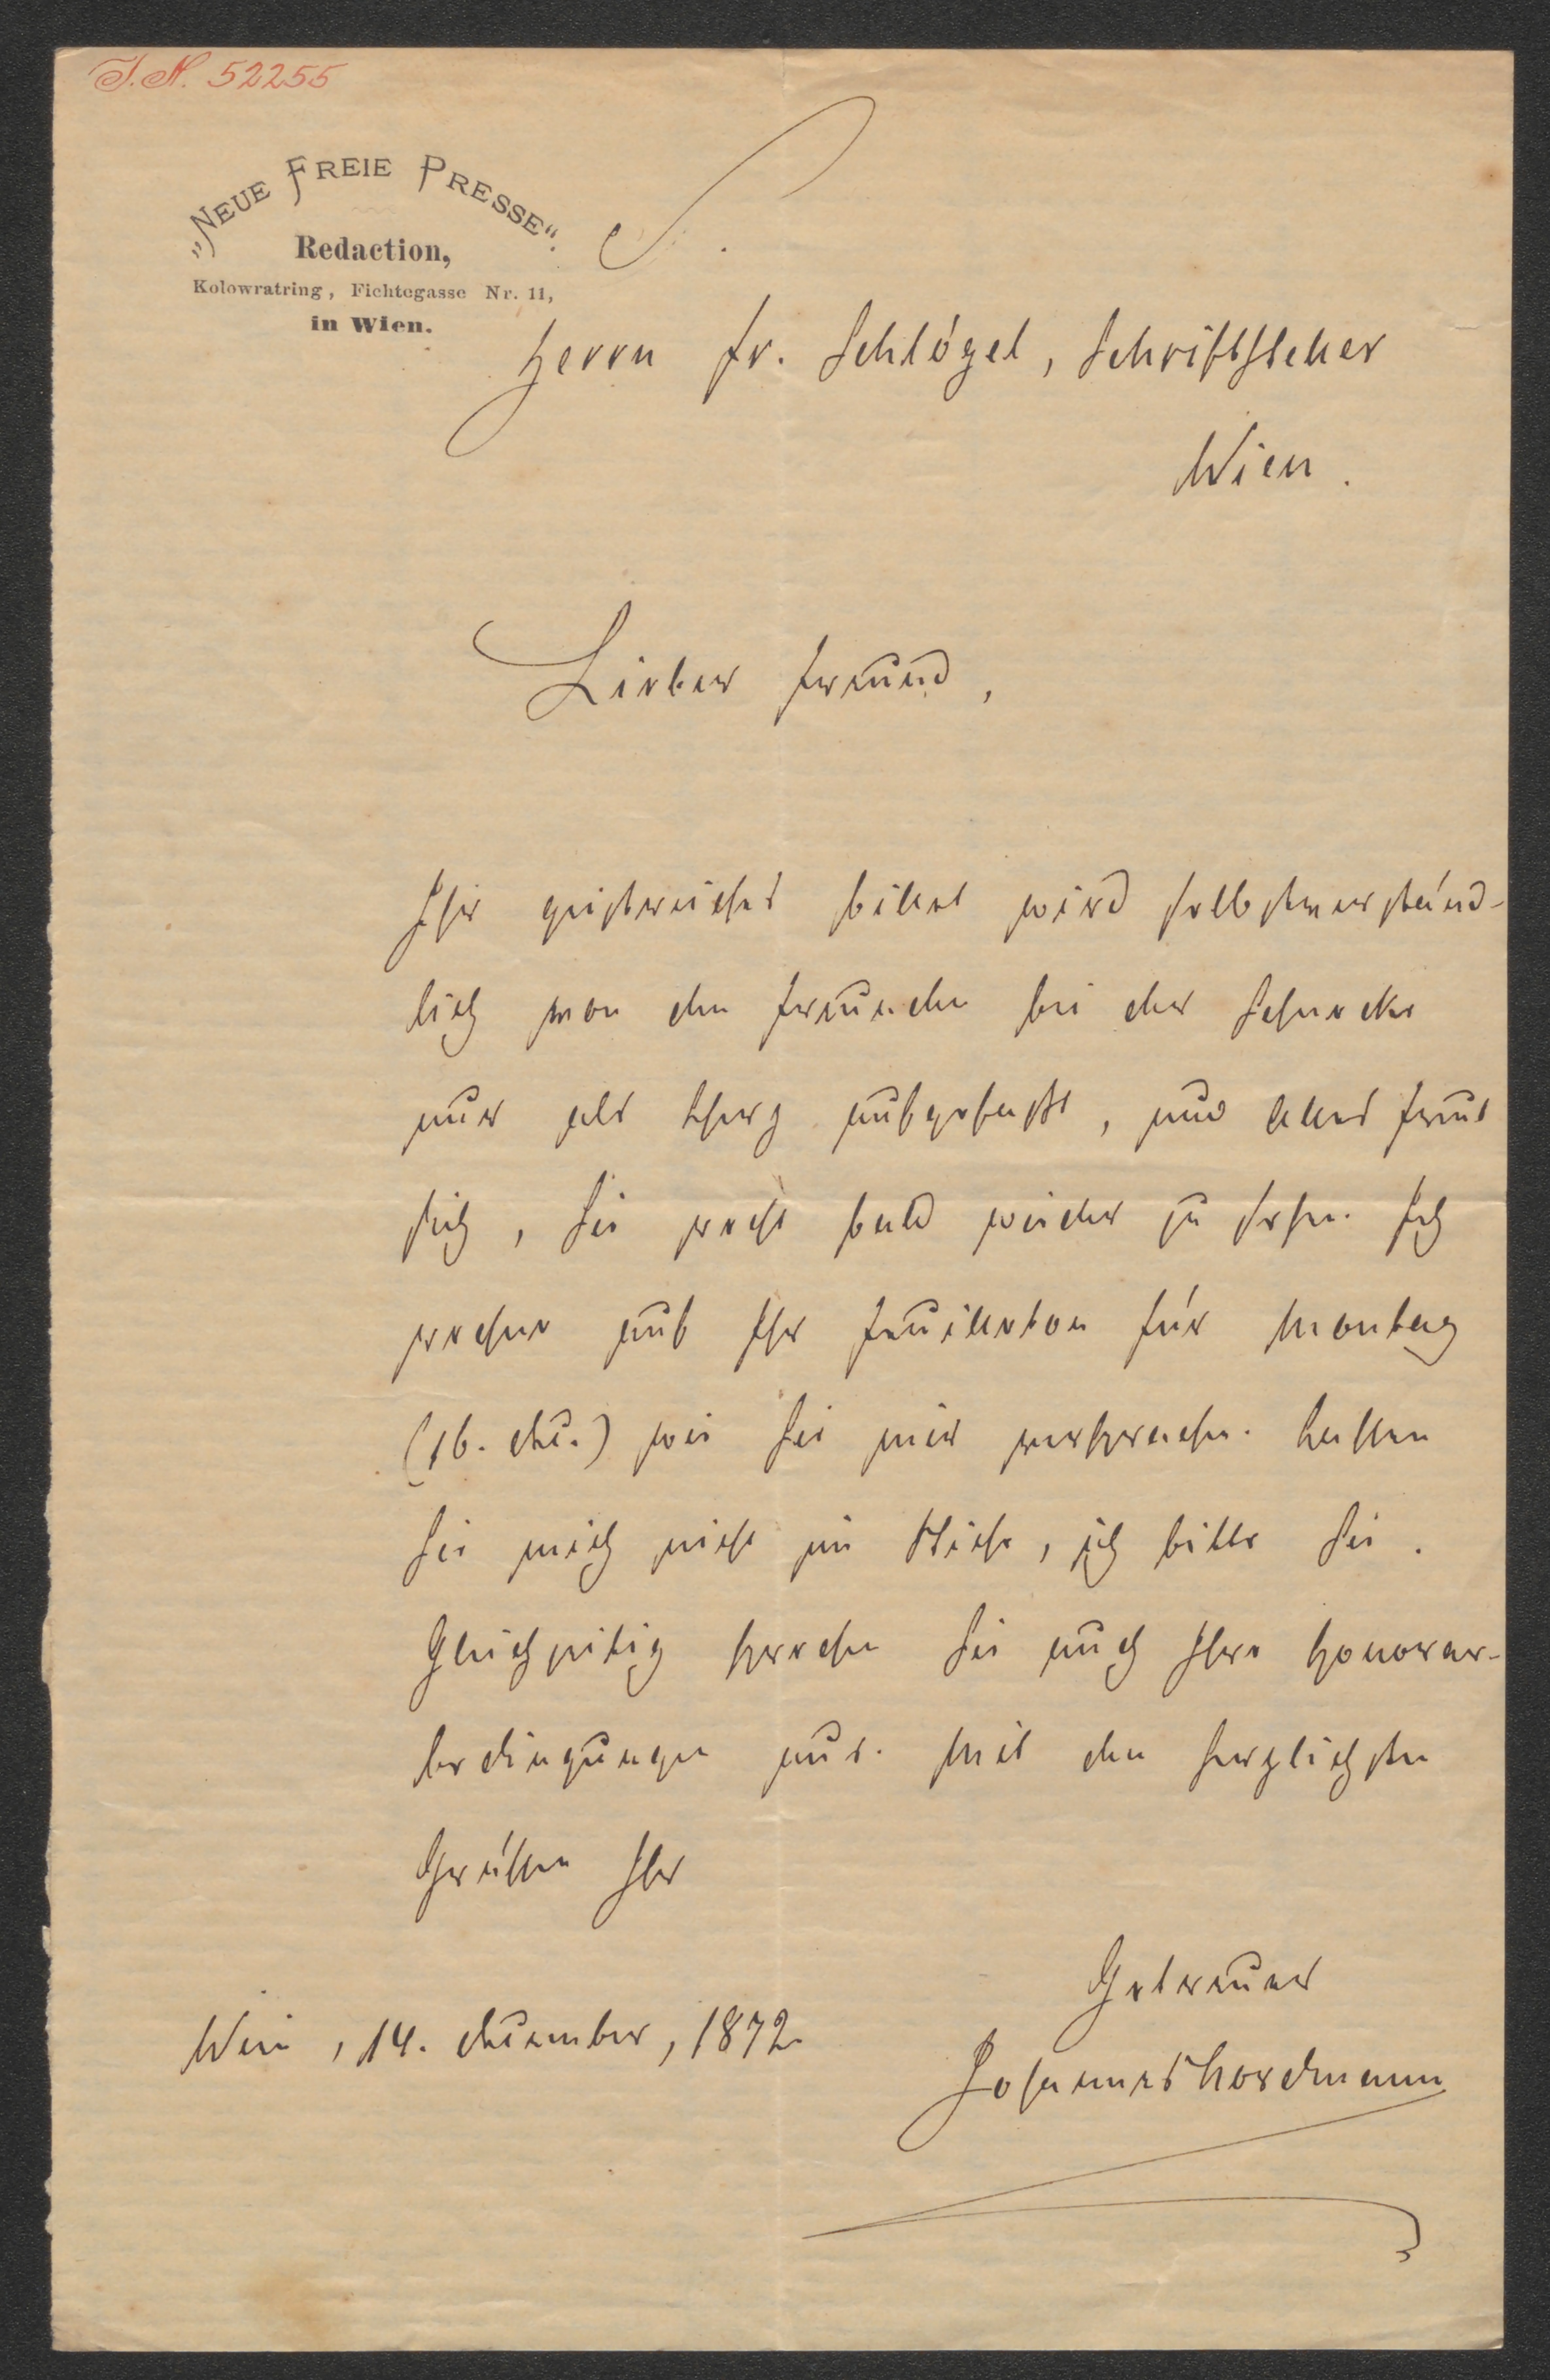 J. N. 52255
„NEUE FREIE PRESSE“.
Redaction,
Kolowratring, Fichtegasse Nr. 11,
in Wien.
Herrn Fr. Schlögel, Schriftsteller
Wien.
Lieber Freund,
Ihr geistreiches Billet wird selbstverständ-
lich von den Freunden bei der Schnecke
nur als Scherz aufgefaßt, und Alles freut
sich, Sie recht bald wieder zu sehen. Ich
rechne auf Ihr Feuilleton für Montag
(16. dM.) wie Sie mir versprachen. Lassen
Sie mich nicht im Stiche, ich bitte Sie.
Gleichzeitig sprechen Sie auch Ihre Honorar-
bedingungen aus. Mit den herzlichsten
Grüßen Ihr
Getreuer
Wien, 14. Dezember, 1872
Johannes Nordmann